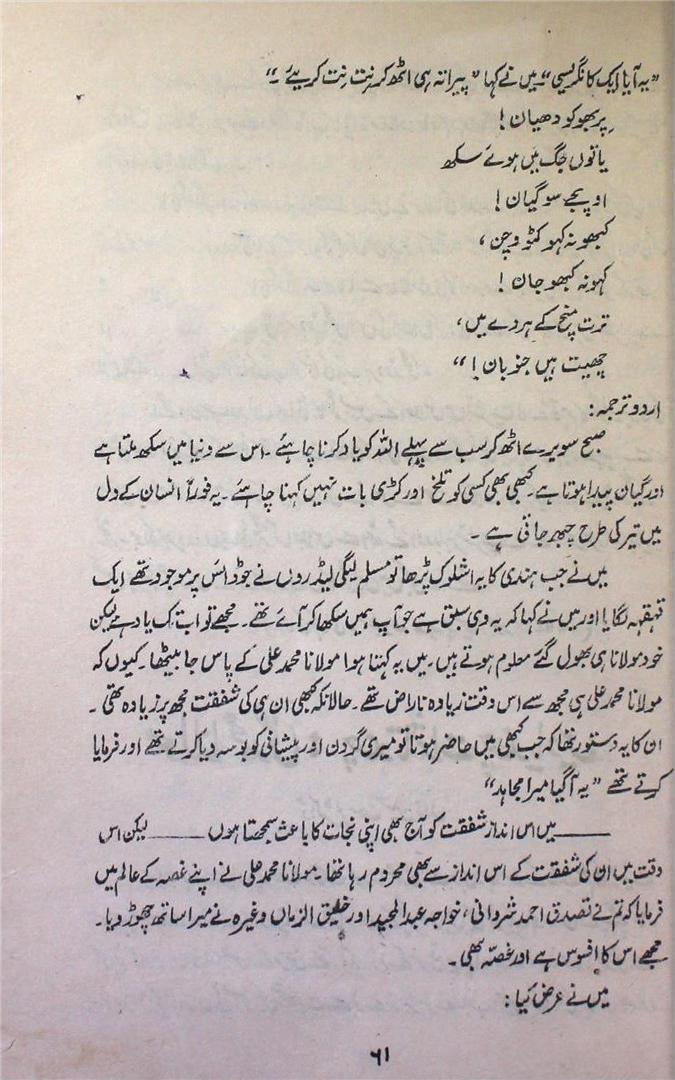 "یہ آیا ایک کانگریسی"۔ میں نے کہا "پراتہ ہی اٹھ کر نِت نِت کریئے۔"
پربھو کو دھیان!
یاتوں جگ میں ہوئے سکھ
اوپجے سو گیان!
کبھو نہ کہو کٹو وچن،
کہو نہ کبھو جان!
ترت منخ کے ہردے میں،
چھیت ہیں جنو بان!"
اردو ترجمہ:
صبح سویرے اٹھ کر سب سے پہلے اللہ کو یاد کرنا چاہئے۔ اس سے دنیا میں سکھ ملتا ہے
اور گیان پیدا ہوتا ہے۔ کبھی بھی کسی کو تلخ اور کڑی بات نہیں کہنا چاہئے۔ یہ فوراً انسان کے دل
میں تیر کی طرح چبھ جاتی ہے۔
میں نے جب ہندی کا یہ اشلوک پڑھا تو مسلم لیگی لیڈروں نے جو ڈائس پر موجود تھے ایک
قہقہہ لگایا اور میں نے کہا کہ یہ وہی سبق ہے جو آپ ہمیں سکھا کر آئے تھے۔ مجھے تو اب تک یاد ہے لیکن
خود مولانا ہی بھول گئے معلوم ہوتے ہیں۔ میں یہ کہتا ہوا مولانا محمد علی کے پاس جا بیٹھا۔ کیوں کہ
مولانا محمد علی ہی مجھ سے اس وقت زیادہ ناراض تھے۔ حالانکہ کبھی ان ہی کی شفقت مجھ پر زیادہ تھی۔
ان کا یہ دستور تھا کہ جب کبھی میں حاضر ہوتا تو میری گردن اور پیشانی کو بوسہ دیا کرتے تھے اور فرمایا
کرتے تھے "یہ آ گیا میرا مجاہد"
——— میں اس انداز شفقت کو آج بھی اپنی نجات کا باعث سمجھتا ہوں ——— لیکن اس
وقت میں ان کی شفقت کے اس انداز سے بھی محروم رہا تھا۔ مولانا محمد علی نے اپنے غصہ کے عالم میں
فرمایا کہ تم نے تصدق احمد شروانی، خواجہ عبدالمجید اور خلیق الزماں وغیرہ نے میرا ساتھ چھوڑ دیا۔
مجھے اس کا افسوس ہے اور غصّہ بھی۔
میں نے عرض کیا:
۶۱